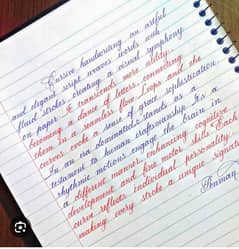 Cursive handwriting an artful
and elegant script weaves words with
fluid strokes creating a visual symphony
on paper. It transcends mere utility,
becoming a dance of letters, connecting
them in a seamless flow. Loops and the
curves evoke a sense of grace sophistication
In an era dominated stands as a
testament to human craftsmanship. It's a
rhythmic motions engage the brain in
a different manner, enhancing cognitive
development and fine motor skills. Each
curve reflects individual personality
making every stroke a unique signature